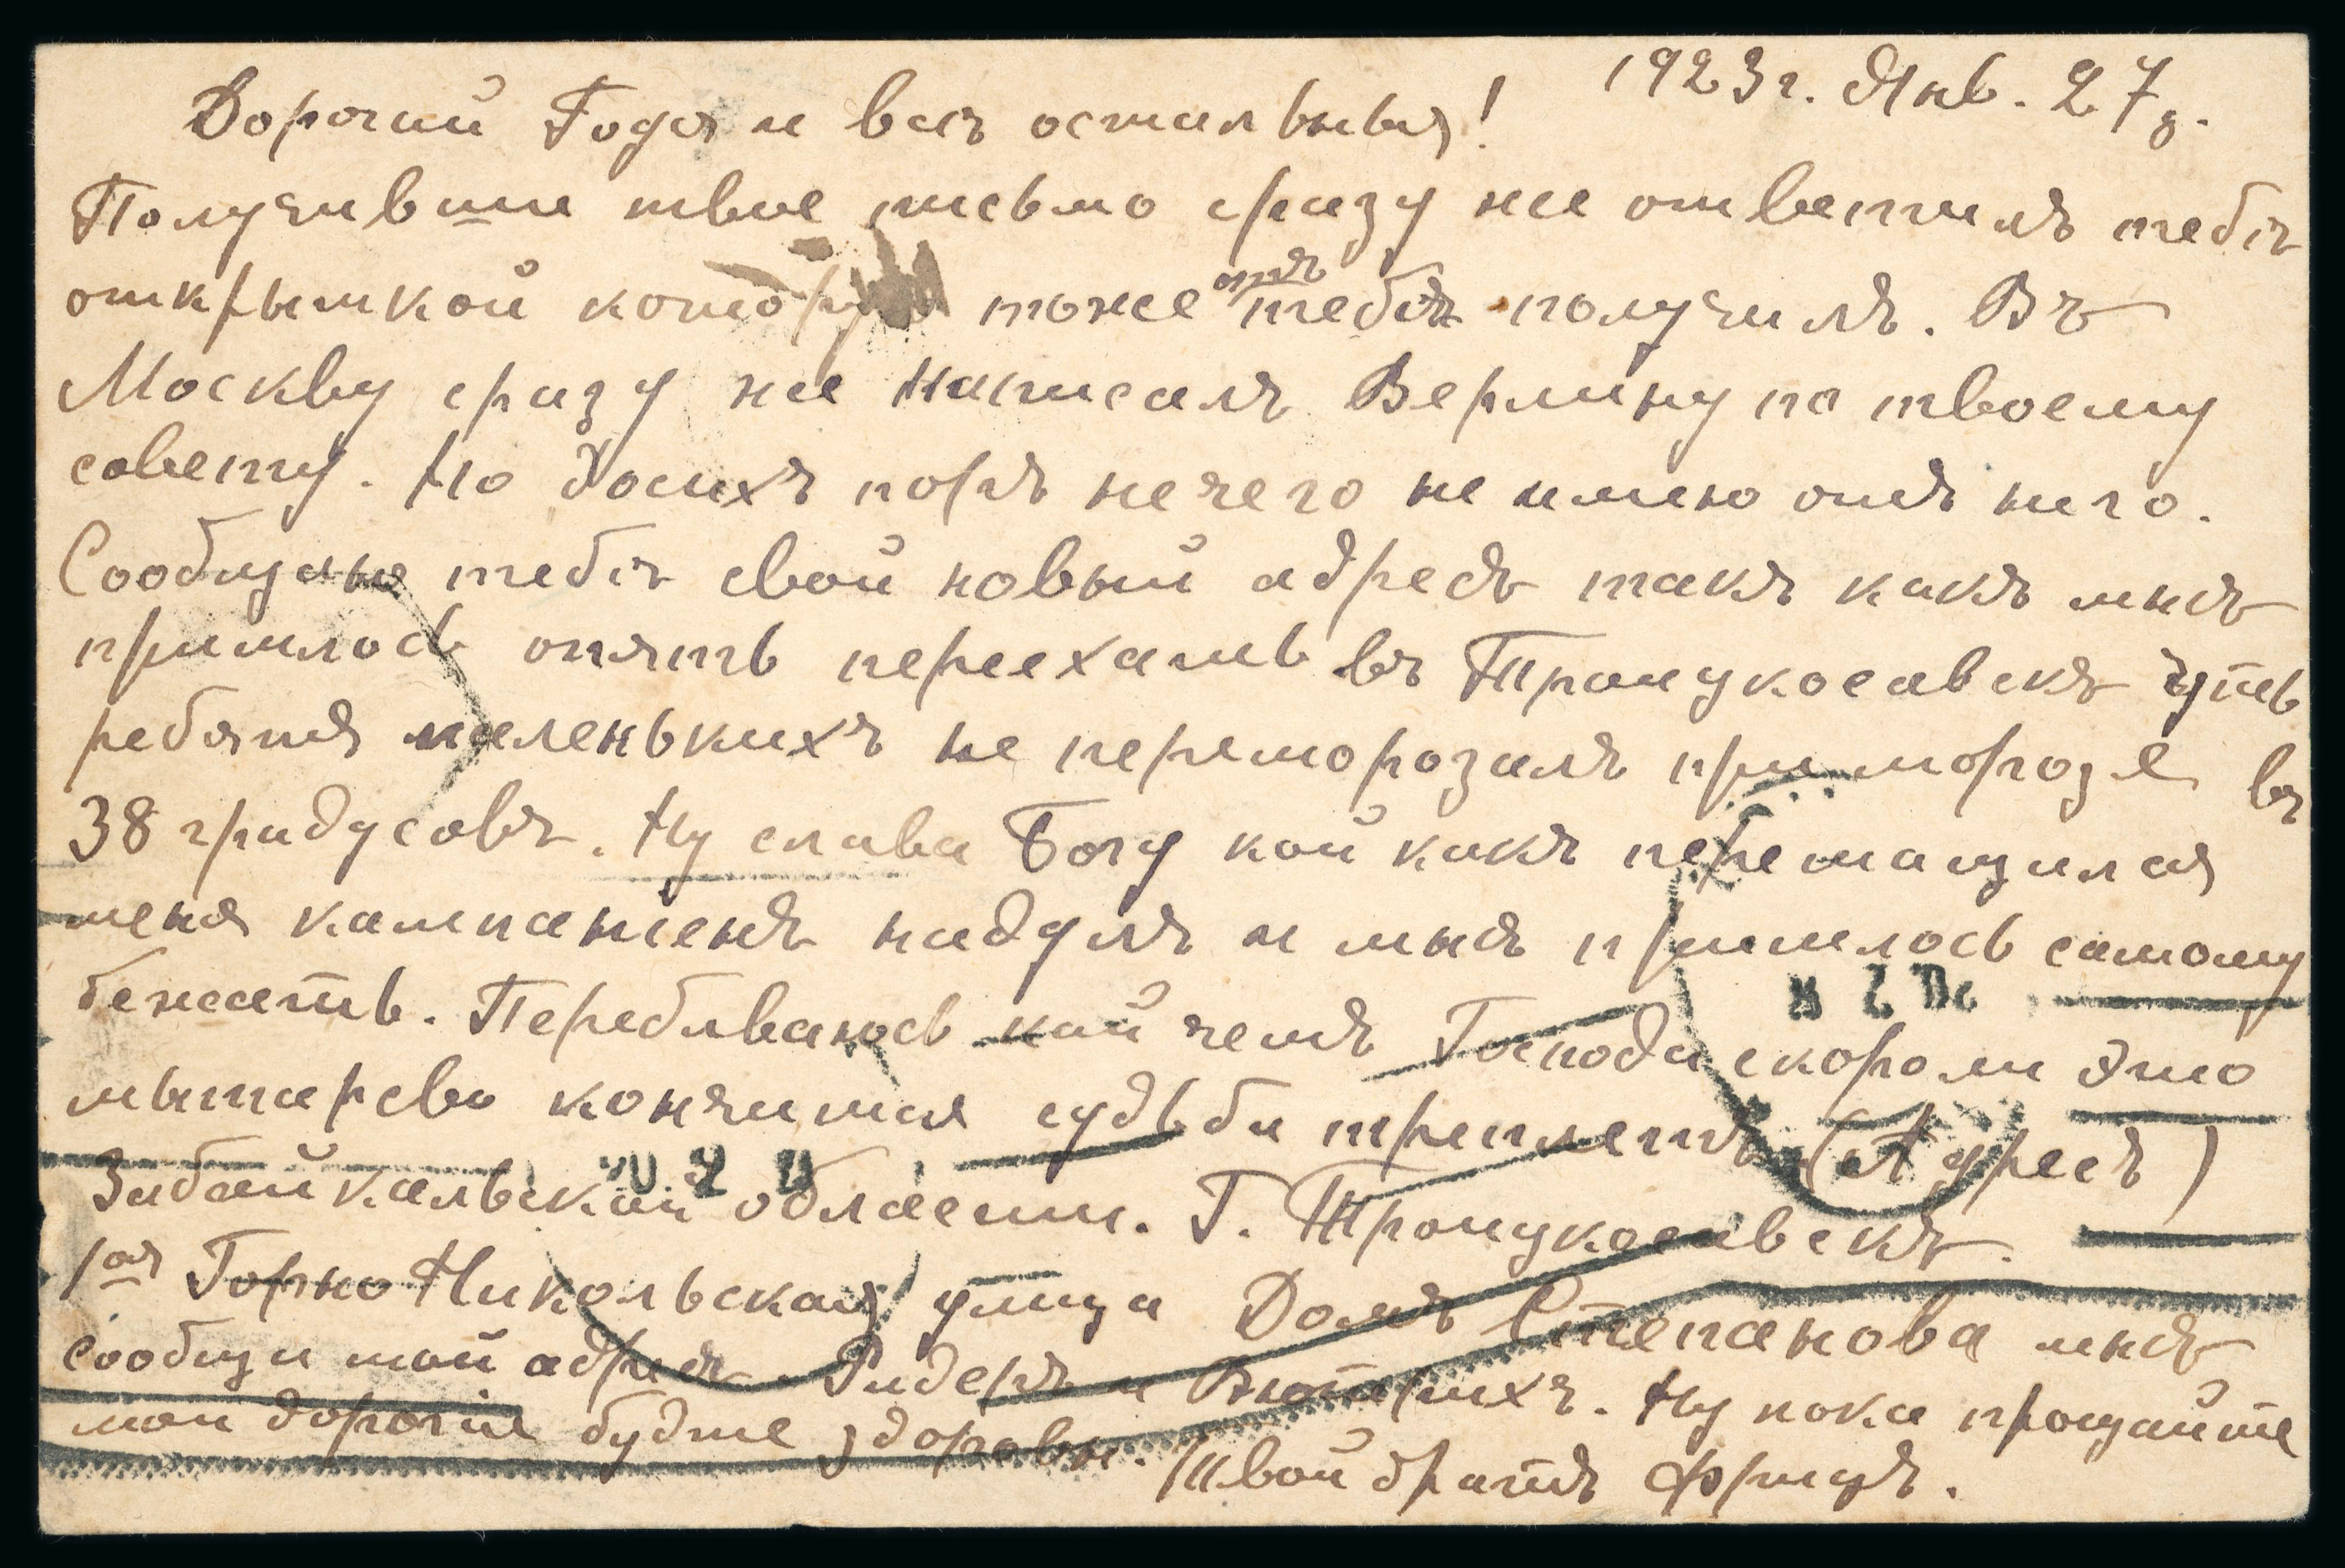 1923 г. Янв. 27 д.
Дорогий Годя и все остальныя!
Получивши твое письмо сразу же ответилъ тебѣ
открыткой которую тоже отъ тебя получилъ. Въ
Москву сразу же написалъ Верлину по твоему
совету. Но досихъ поръ нечего не имею отъ него.
Сообщаю тебѣ свой новый адресъ такъ какъ мнѣ
пришлось опять переехать въ Троицкосавскъ чуть
ребятъ маленькихъ не переморозилъ при морозе въ
38 градусовъ. Ну слава Богу кой какъ перетащился
меня кампаніенъ надулъ и мнѣ пришлось самому
бежать. Перебиваюсь кой чемъ Господи скороли это
мытарсво кончится судьба треплетъ (Адресъ)
Забайкальской области. Г. Троицкосавскъ.
1ая Горно Никольская улица Домъ Степанова мнѣ
сообщи мой адресъ. Ридеръ и Вютрихъ. Ну пока прощайте
мои дорогіе будте здоровы. Твой братъ Фрицъ.